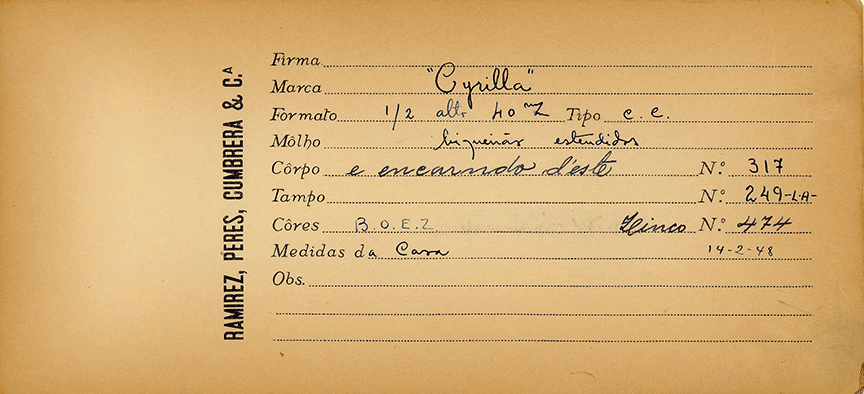 RAMIREZ, PERES, CUMBRERA & C.ᴬ
Firma
Marca "Cyrilla"
Formato 1/2 alto 40 m/m Tipo c. c.
Môlho biqueirão estendidos
Côrpo e encarnado d'este N.º 317
Tampo N.º 249-L.A-
Côres B.O.E.Z. Zinco N.º 474
Medidas da Casa 14-2-48
Obs.